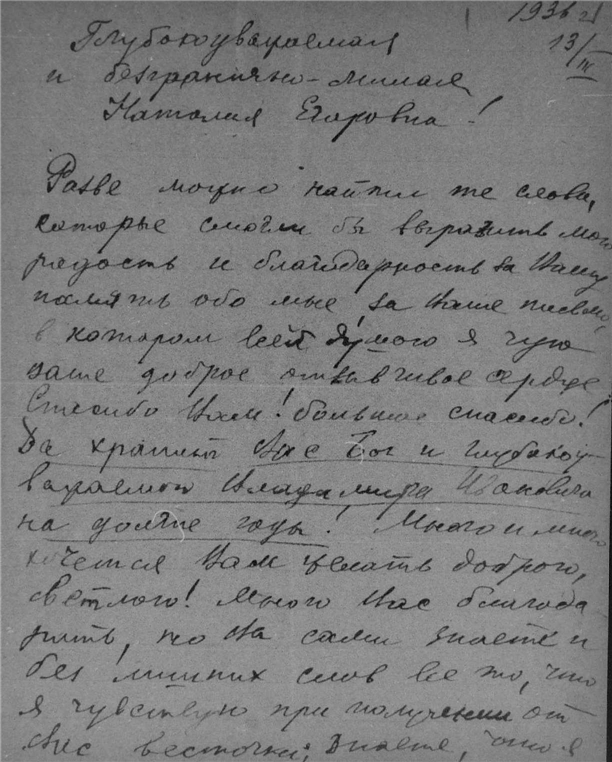 1936 г
13/III
Глубокоуважаемая
и безгранично-милая
Наталия Егоровна!
Разве можно найти те слова,
которые смогли бы выразить мою
радость и благодарность за Вашу
память обо мне, за Ваше письмо,
в котором всей душою я чую
ваше доброе отзывчивое сердце.
Спасибо Вам! большое спасибо!
Да хранит Вас Бог и глубокоу-
важаемого Владимира Ивановича
на долгие годы! Много и много
хочется Вам желать доброго,
светлого! Много Вас благода-
рить, но Вы сами знаете и
без лишних слов все то, что
я чувствую при получении от
Вас весточки; знаете, что я